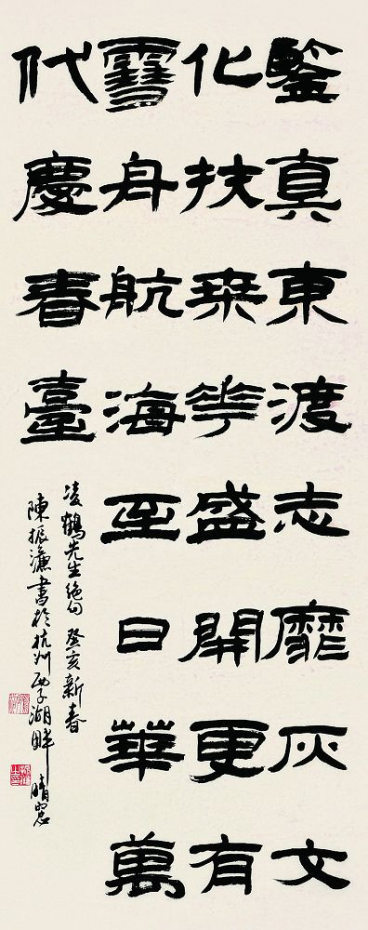 鑒真東渡志靡灰文
化扶桒花盛開更有
雪舟航海至日華萬
代慶春臺
凌鶴先生絕句 癸亥新春
陳振濂書於杭州西子湖畔 晴窗